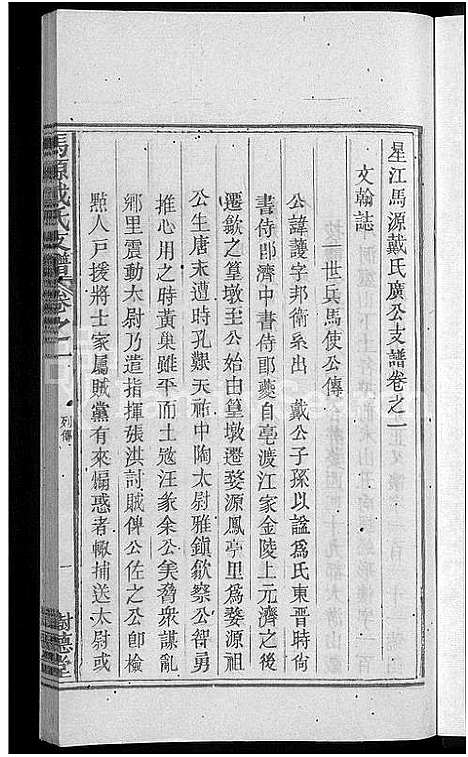 星江馬源戴氏廣公支譜卷之一
文翰誌
一世兵馬使公傳
公諱護字邦衛系出　戴公子孫以諡爲氏東晉時尙
書侍郎濟中書侍郎夔自亳渡江家金陵上元濟之後
遷歙之篁墩至公始由篁墩遷婺源鳳亭里爲婺源祖
公生唐末遭時孔艱天祐中陶太尉雅鎭歙察公智勇
推心用之時黃巢雖平而土宼汪彖余公美脅衆謀亂
鄉里震動太尉乃遣指揮張洪討賊俾公佐之公卽檢
點人戸援將士家屬賊黨有來煽惑者輙捕送太尉或
馬源戴氏支譜卷之一
列傳
一
樹德堂